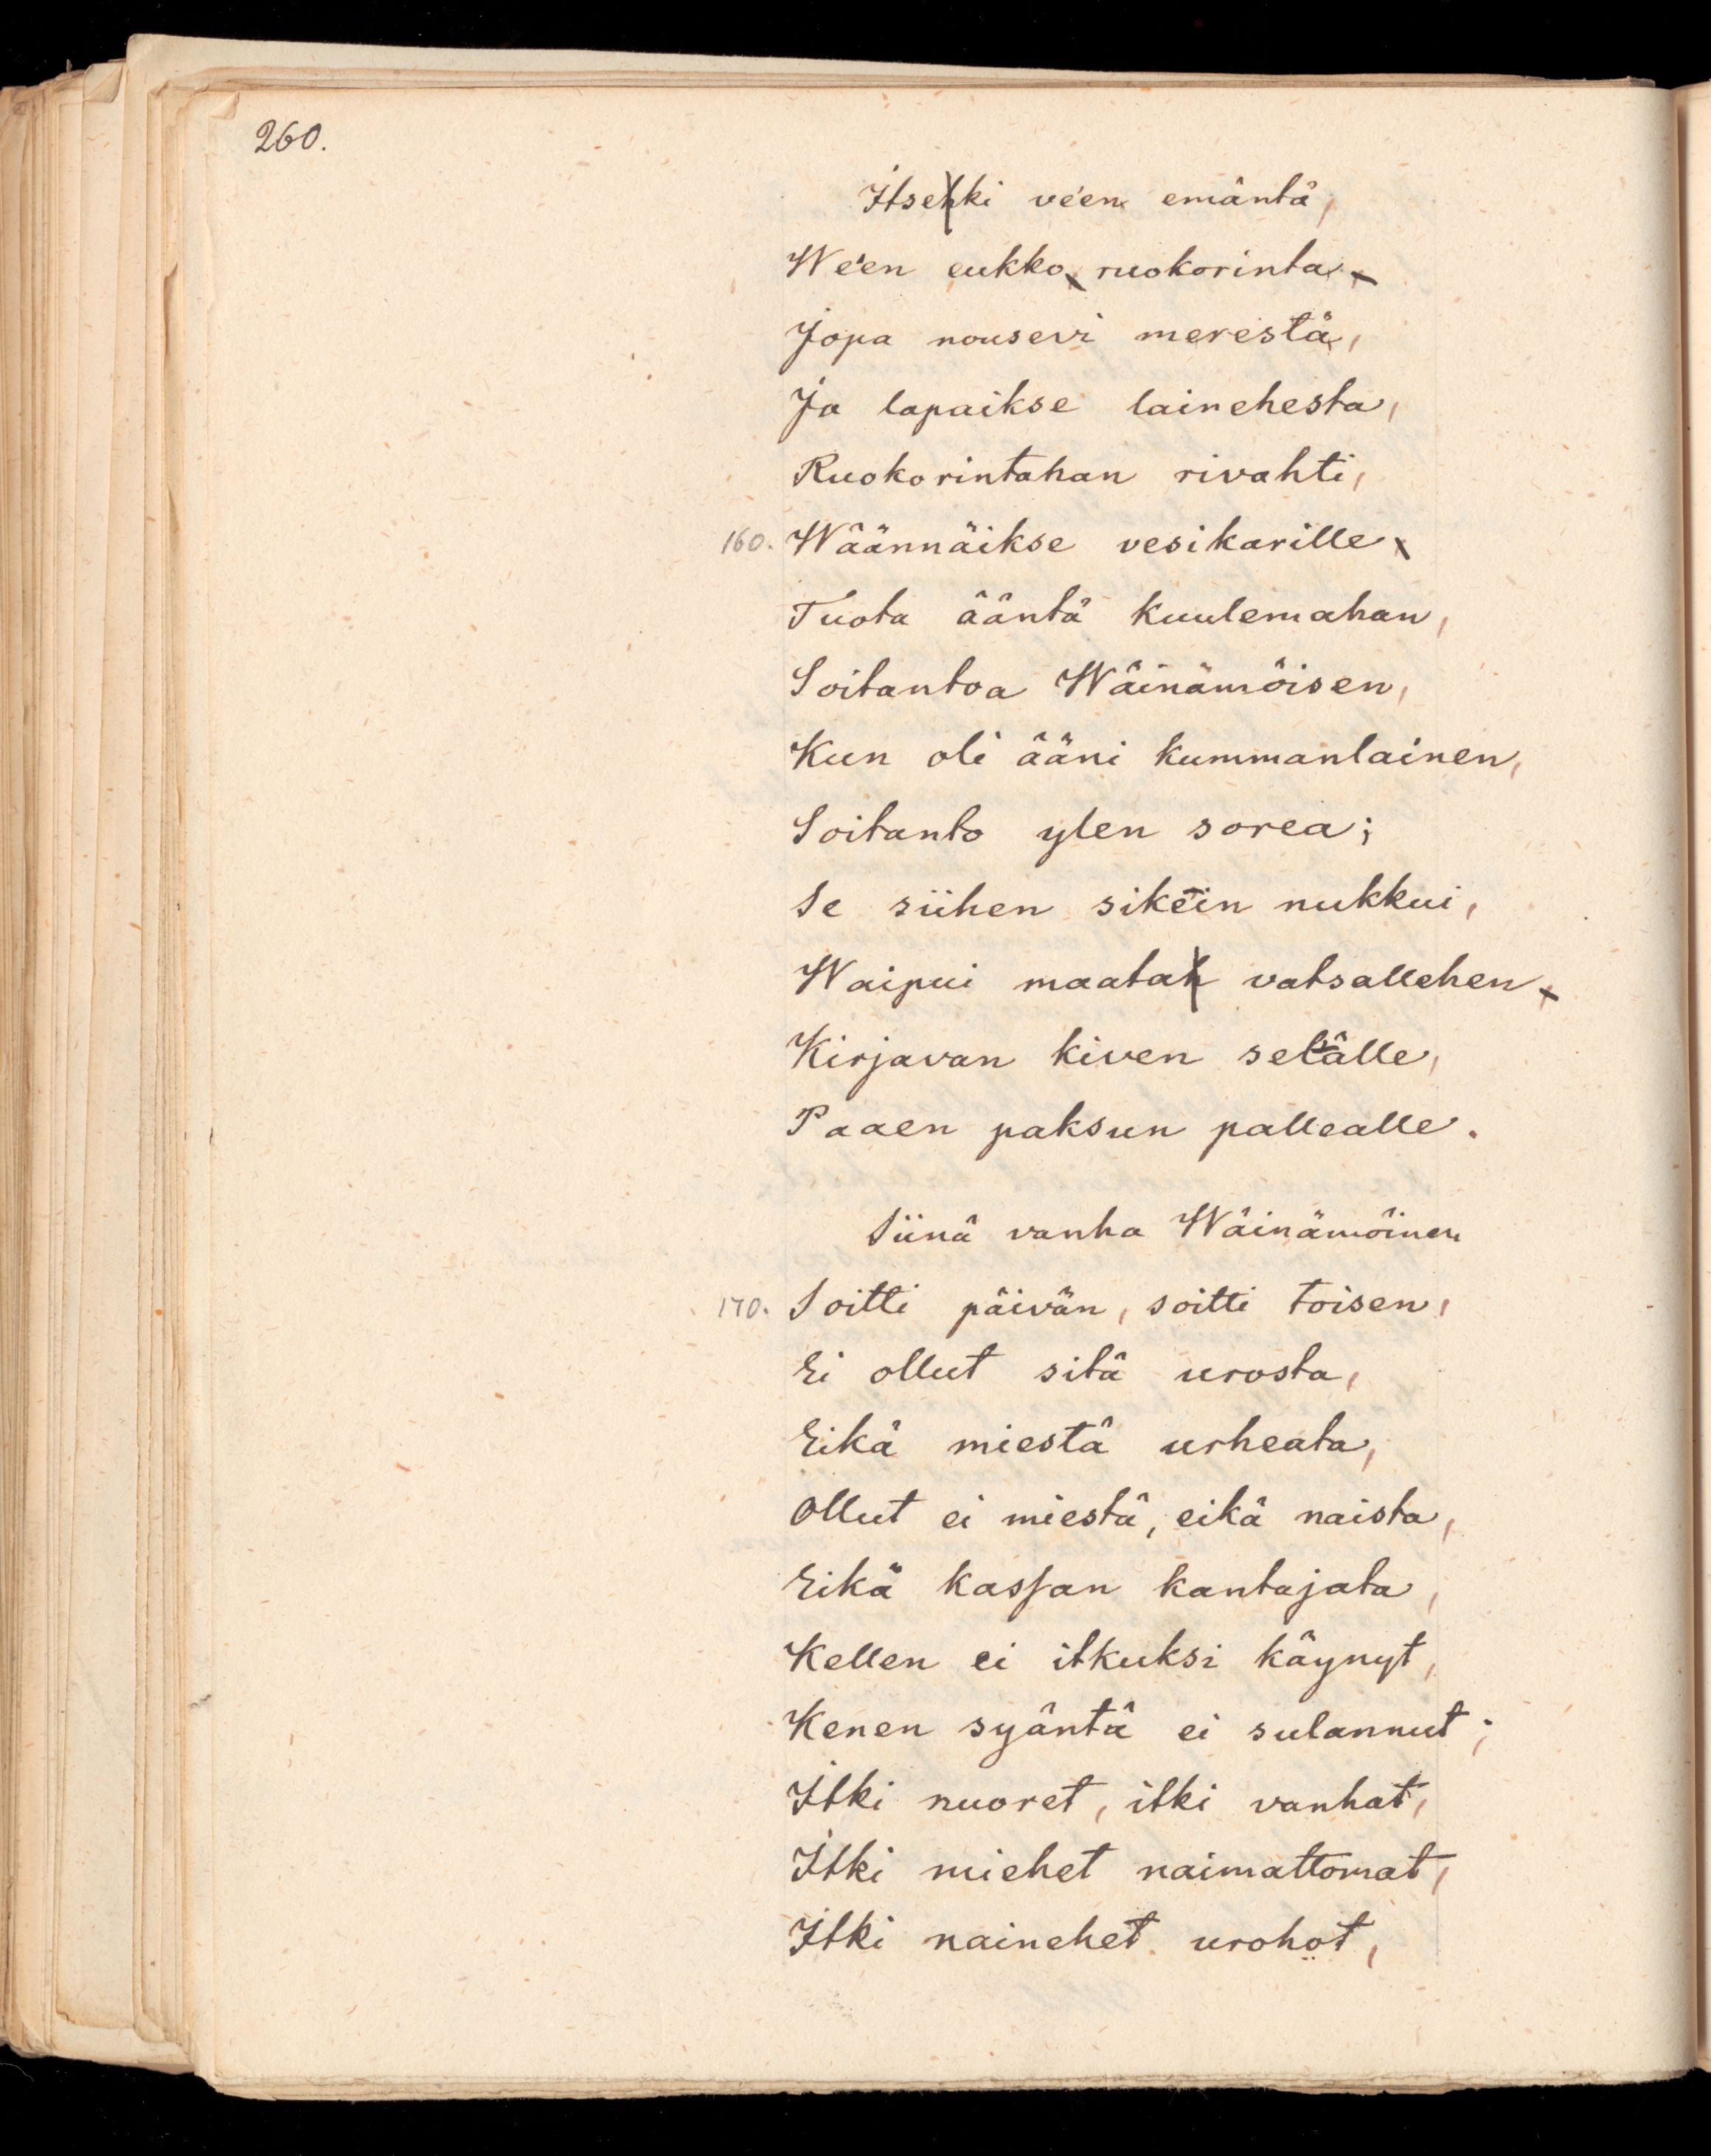 260.
Itsehki veen emäntä,
We'en eukko, ruokorinta,
Jopa nousevi merestä,
Ja lapaikse lainehesta,
Ruokorintahan rivahti,
160. Wäännäikse vesikarille,
Tuota ääntä kuulemahan,
Soitantoa Wäinämöisen,
Kun oli ääni kummanlainen,
Soitanto ylen sorea;
Se siihen sikein nukkui,
Waipui maatah vatsallehen,
Kirjavan kiven selälle,
Paaen paksun pallealle.
Siinä vanha Wäinämöinen
170. Soitti päivän, soitti toisen,
Ei ollut sitä urosta,
Eikä miestä urheata,
Ollut ei miestä, eikä naista,
Eikä kassan kantajata,
Kellen ei itkuksi käynyt,
Kenen syäntä ei sulannut;
Itki nuoret, itki vanhat,
Itki miehet naimattomat,
Itki nainehet urohot,